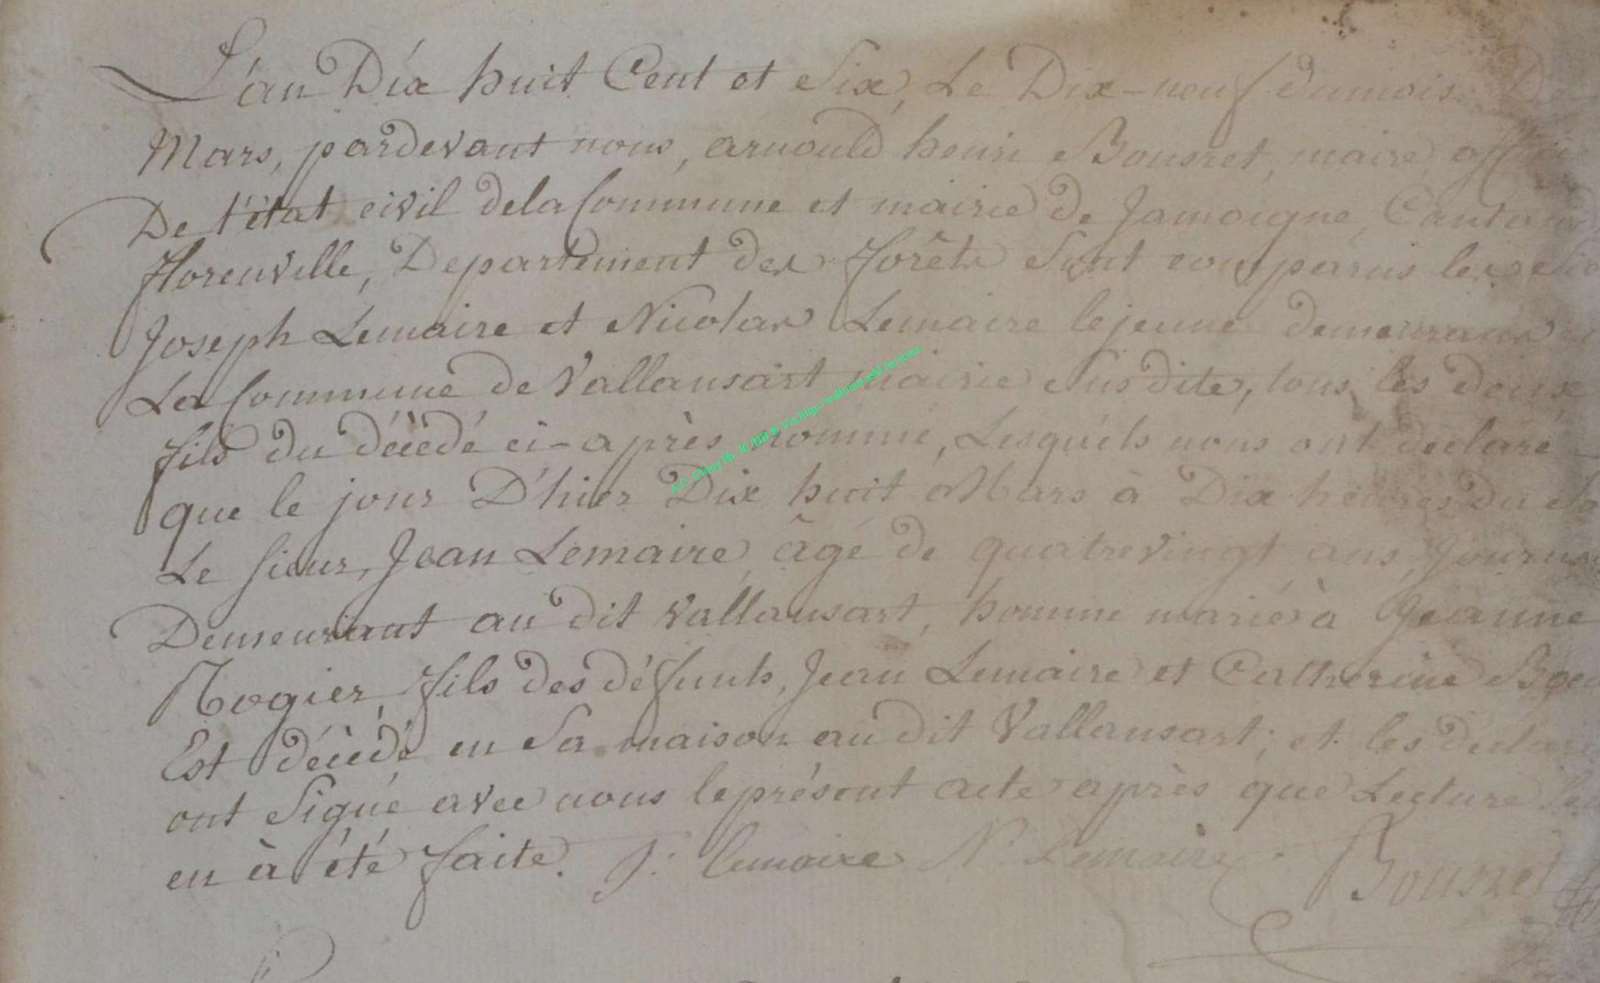 L'an Dix huit Cent et Six, Le Dix-neuf dumois De
Mars, pardevant nous, arnould henri Bousret, maire, offici
De l'état civil dela Commune et mairie de Jamoigne, Canton
florenville, Departement des forêts Sont comparus les
Joseph Lemaire et Nicolas Lemaire lejeune demeurans
La Commune de Vallansart mairie Susdite, tous les deux
fils du décédé ci-après nommé, Lesquels nous ont declaré
que le jour D'hier Dix huit Mars à Dix heures du
Le Sieur, Jean Lemaire, âgé de quatrevingt ans,
Demeurant au dit Vallansart, homme marié à Jeanne
Rogier, fils des défunts, Jean Lemaire et Catherine
Est décédé en Sa maison audit Vallansart; et les declar
ont Signé avec nous leprésent acte après que Lecture
en à été faite. J: lemaire N: Lemaire Bousret